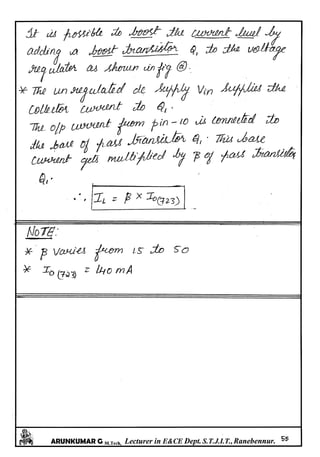 It is possible to boost the current level by
adding a boost transistor Q₁ to the voltage
regulator as shown in fig ⓐ.
* The unregulated dc supply Vin supplies the
collector current to Q₁.
The o/p current from pin-10 is connected to
the base of pass transistor Q₁. This base
current gets multiplied by β of pass transistor
Q₁.
∴ I_L = β × I_o(723)
NOTE:
* β varies from 15 to 50
* I_o (723) = 140 mA
ARUNKUMAR G M.Tech, Lecturer in E&CE Dept. S.T.J.I.T., Ranebennur. 55